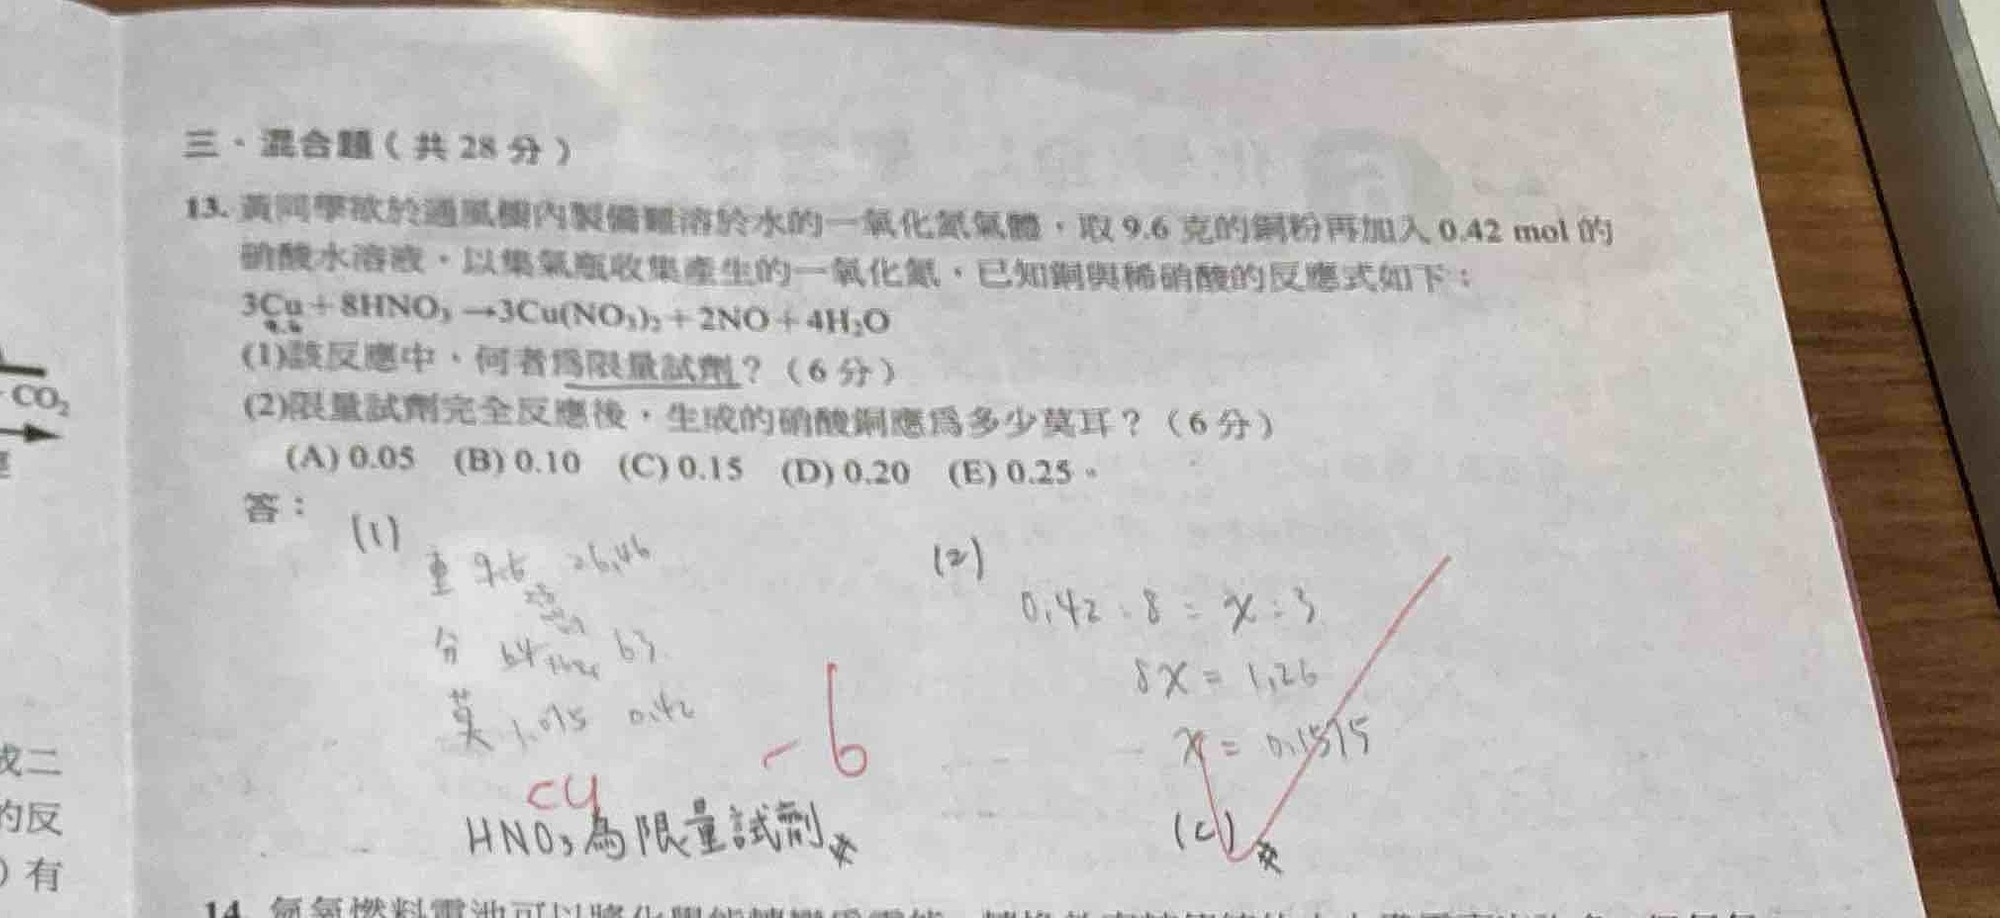 三、混合題(共 28 分)
13. 黃同學欲於通風櫥內製備難溶於水的一氧化氮氣體,取 9.6 克的銅粉再加入 0.42 mol 的
硝酸水溶液,以集氣瓶收集產生的一氧化氮,已知銅與稀硝酸的反應式如下:
3Cu + 8HNO₃ → 3Cu(NO₃)₂ + 2NO + 4H₂O
9.6
(1)該反應中,何者為限量試劑?(6 分)
(2)限量試劑完全反應後,生成的硝酸銅應為多少莫耳?(6 分)
(A) 0.05 (B) 0.10 (C) 0.15 (D) 0.20 (E) 0.25。
答:
(1)
重 9.6 26.46
分 64 63
莫 0.42
-6
Cu
HNO₃為限量試劑
(2)
0.42 : 8 = x : 3
8x = 1.26
x = 0.1575
(C)
CO₂
成二
的反
) 有
14.